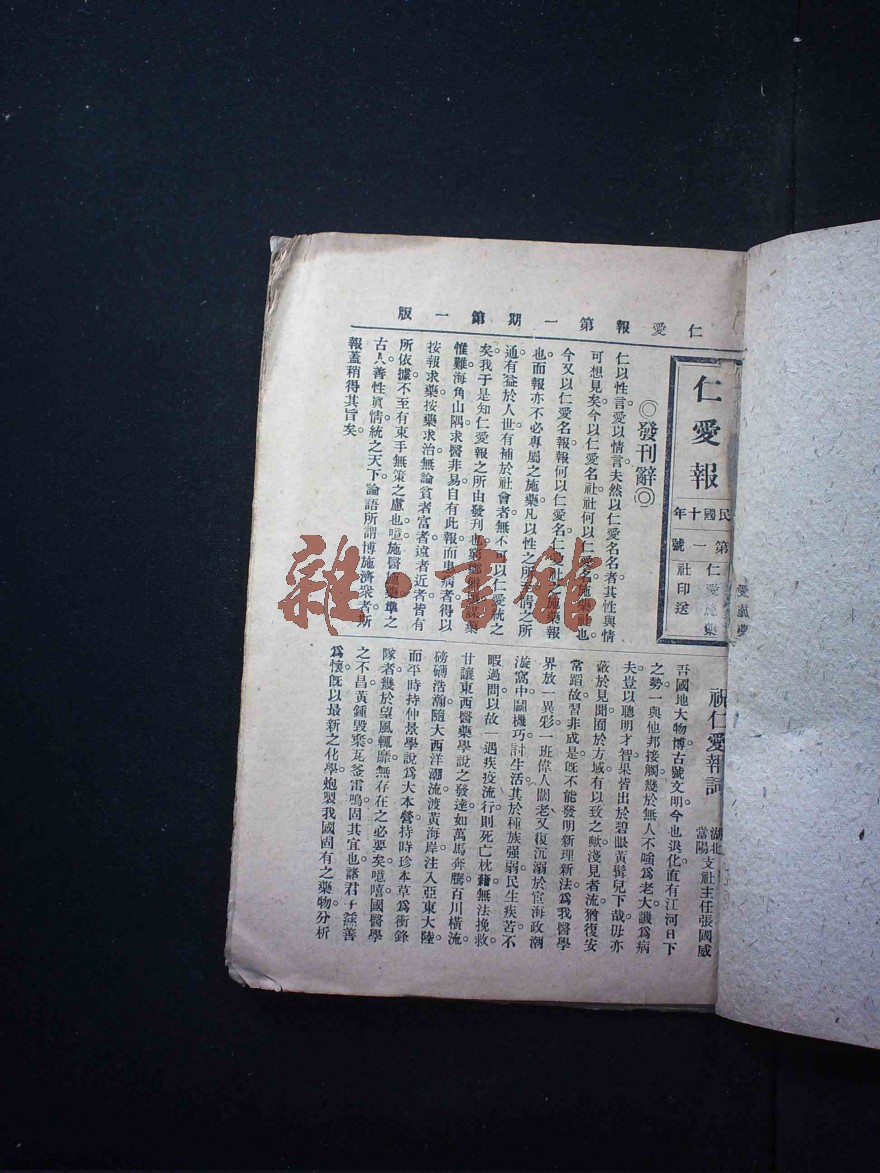 仁愛報第一期第一版
仁愛報
民國十年
第一號
仁愛施藥
社印送
◎發刊辭◎
仁以性言愛以情言。夫然以仁愛名名者其性與情
可想見矣今以仁愛名社社何以仁愛名仁愛施藥社也
今又以仁愛名報報何以仁愛名仁愛社之施藥報
也。而報亦不必專屬之施藥凡以性之所情之所
通有益於人世有補於社會者無不可以仁愛統之
矣。我于是知仁愛報之所由發刊也藥
惟難海角山隅求醫非易自有此報而患病者得以
按報求藥按藥求治無論貧者富者遠者近者皆有
所依據不至有束手無策之慮也噫施醫施藥準之
古人善性眞情統之天下論語所謂博施濟衆者斯
報蓋稍得其旨矣。
祝仁愛報詞
湖北
當陽支社主任張國威
吾國地大物博古號文明今也退化直有江河日下
之勢一與他邦接觸幾於無人不嗤爲老大譏爲病
夫豈以聰明才智果皆出於碧眼黃髯兒下哉毋亦
蔽於見聞囿於方域有以致之歟淺見者流猶復安
常蹈故習非成是旣不能發明新理新法爲我醫學
界放一異彩一班偉人闊老又復沉溺於宦海政潮
漩窩中鬭機巧討生活其於種族强弱民生疾苦不
暇過問以故一遇疾疫流行則死亡枕藉無法挽救。
廿讓東西醫藥學說之發達如萬馬奔騰百川橫流。
磅礴浩瀚隨大西洋潮流渡黃海岸注入亞東大陸
而平時持仲景學說爲大本營持時珍本草爲衝鋒
隊者幾於望風輒靡無存在之必要矣噫嘻國醫學
之不昌黃鍾毀棄瓦釜雷鳴固其宜也諸君子善
爲懷旣以最新之化學炮製我國固有之藥物分析
雜·書館